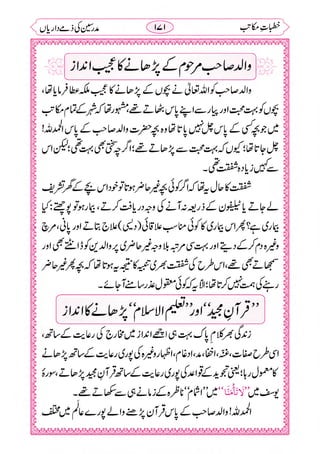 خطباتِ مکاتب ۱۷۱ مدرسین کی ذمے داریاں
والد صاحب مرحوم کے پڑھانے کا عجیب انداز
والد صاحب کو اللہ تعالیٰ نے بچوں کے پڑھانے کا عجیب ملکہ عطا فرمایا تھا،
بچوں کو بہت محبت اور پیار سے اپنے پاس بٹھاتے تھے، مشہور تھا کہ شہر کے تمام مکاتب
میں جو بچہ کسی کے پاس نہیں چل پاتا تھا وہ بچہ حضرت والد صاحب کے پاس الحمدللہ!
چل جاتا تھا؛ کیوں کہ بہت محبت سے پڑھاتے تھے؛ اگرچہ سختی بھی تھی؛ لیکن شفقت
سے زیادہ نہیں تھی۔
شفقت کا حال یہ تھا کہ اگر کوئی بچہ غیر حاضر ہوتا تو خود اس بچے کے گھر تشریف
لے جاتے یا ٹیلیفون کے ذریعہ نہ آنے کی وجہ دریافت کرتے، بیمار ہو تو پوچھتے: کیا
بیماری ہے؟ پھر اس بیماری کا کوئی مناسب علاقائی (دیسی) علاج بتاتے اور پانی، مرچ
وغیرہ دم کر کے دیتے اور کئی مرتبہ بلا وجہ غیر حاضری پر والدین کو ڈانٹتے بھی اور
سمجھاتے بھی تھے، اس طرح کی شفقت بھری تنبیہ کا نتیجہ یہ ہوتا تھا کہ بچہ غیر حاضر
رہنے کی ہمت ہی نہیں کرتا تھا؛ الا یہ کہ کوئی معقول عذر سامنے آجائے۔
”قرآنِ مجید“ اور ”تعلیم الاسلام“ پڑھانے کا انداز
زندگی بھر کلام پاک بہت ہی اچھے انداز میں مخارج کی رعایت کے ساتھ،
اسی طرح صفات، غنہ، اخفا، مد، ادغام، اظہار وغیرہ کی پوری رعایت کے ساتھ پڑھانے
کا معمول رہا؛ یعنی تجوید کے قواعد کی پوری رعایت کے ساتھ قرآنِ مجید پڑھاتے، سورۂ
یوسف میں ”لَا تَأْمَنَّا“ میں ”اشمام“ ناظرہ کے زمانے ہی سے سکھاتے تھے۔
الحمدللہ! والد صاحب کے پاس قرآن پڑھنے والے پورے عالَم میں مختلف